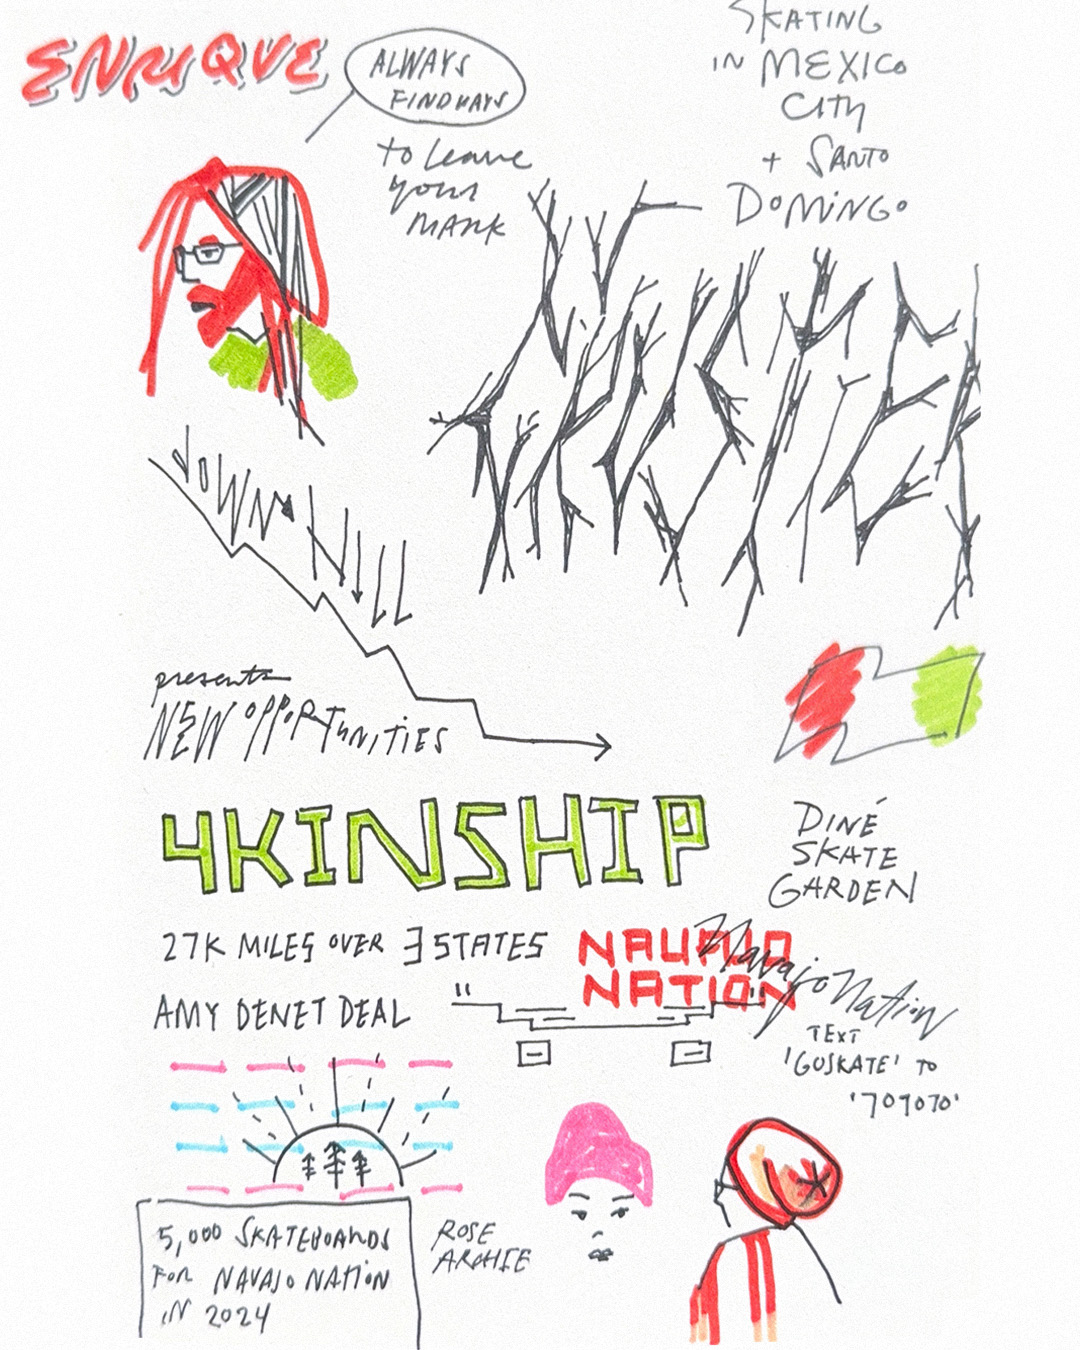 ENRIQUE
ALWAYS
FIND WAYS
to leave
your
MARK
SKATING
IN MEXICO
CITY
+ SANTO
DOMINGO
DOWN HILL
presents
NEW OPPORTUNITIES
4KINSHIP
DINÉ
SKATE
GARDEN
27K MILES OVER 3 STATES
AMY DENET DEAL
"NAVAJO
NATION"
Navajo Nation
TEXT
'GOSKATE' TO
'707070'
5,000 SKATEBOARDS
FOR NAVAJO NATION
IN 2024
ROSE
ARCHIE